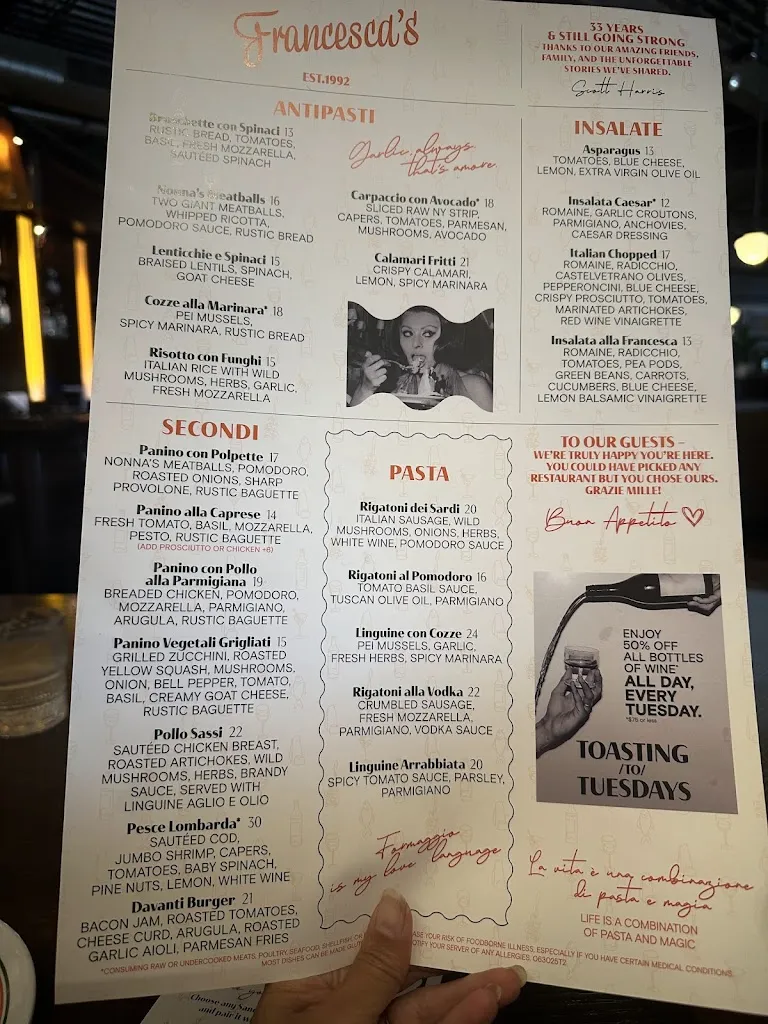 Francesca's
EST.1992
33 YEARS
& STILL GOING STRONG
– THANKS TO OUR AMAZING FRIENDS,
FAMILY, AND THE UNFORGETTABLE
STORIES WE'VE SHARED.
Scott Harris
ANTIPASTI
Bruschette con Spinaci 13
RUSTIC BREAD, TOMATOES,
BASIL, FRESH MOZZARELLA,
SAUTÉED SPINACH
Nonna's Meatballs 16
TWO GIANT MEATBALLS,
WHIPPED RICOTTA,
POMODORO SAUCE, RUSTIC BREAD
Lenticchie e Spinaci 15
BRAISED LENTILS, SPINACH,
GOAT CHEESE
Cozze alla Marinara* 18
PEI MUSSELS,
SPICY MARINARA, RUSTIC BREAD
Risotto con Funghi 15
ITALIAN RICE WITH WILD
MUSHROOMS, HERBS, GARLIC,
FRESH MOZZARELLA
Garlic, always
that's amore
Carpaccio con Avocado* 18
SLICED RAW NY STRIP,
CAPERS, TOMATOES, PARMESAN,
MUSHROOMS, AVOCADO
Calamari Fritti 21
CRISPY CALAMARI,
LEMON, SPICY MARINARA
INSALATE
Asparagus 13
TOMATOES, BLUE CHEESE,
LEMON, EXTRA VIRGIN OLIVE OIL
Insalata Caesar* 12
ROMAINE, GARLIC CROUTONS,
PARMIGIANO, ANCHOVIES,
CAESAR DRESSING
Italian Chopped 17
ROMAINE, RADICCHIO,
CASTELVETRANO OLIVES,
PEPPERONCINI, BLUE CHEESE,
CRISPY PROSCIUTTO, TOMATOES,
MARINATED ARTICHOKES,
RED WINE VINAIGRETTE
Insalata alla Francesca 13
ROMAINE, RADICCHIO,
TOMATOES, PEA PODS,
GREEN BEANS, CARROTS,
CUCUMBERS, BLUE CHEESE,
LEMON BALSAMIC VINAIGRETTE
SECONDI
Panino con Polpette 17
NONNA'S MEATBALLS, POMODORO,
ROASTED ONIONS, SHARP
PROVOLONE, RUSTIC BAGUETTE
Panino alla Caprese 14
FRESH TOMATO, BASIL, MOZZARELLA,
PESTO, RUSTIC BAGUETTE
(ADD PROSCIUTTO OR CHICKEN +6)
Panino con Pollo
alla Parmigiana 19
BREADED CHICKEN, POMODORO,
MOZZARELLA, PARMIGIANO,
ARUGULA, RUSTIC BAGUETTE
Panino Vegetali Grigliati 15
GRILLED ZUCCHINI, ROASTED
YELLOW SQUASH, MUSHROOMS,
ONION, BELL PEPPER, TOMATO,
BASIL, CREAMY GOAT CHEESE,
RUSTIC BAGUETTE
Pollo Sassi 22
SAUTÉED CHICKEN BREAST,
ROASTED ARTICHOKES, WILD
MUSHROOMS, HERBS, BRANDY
SAUCE, SERVED WITH
LINGUINE AGLIO E OLIO
Pesce Lombarda* 30
SAUTÉED COD,
JUMBO SHRIMP, CAPERS,
TOMATOES, BABY SPINACH,
PINE NUTS, LEMON, WHITE WINE
Davanti Burger 21
BACON JAM, ROASTED TOMATOES,
CHEESE CURD, ARUGULA, ROASTED
GARLIC AIOLI, PARMESAN FRIES
PASTA
Rigatoni dei Sardi 20
ITALIAN SAUSAGE, WILD
MUSHROOMS, ONIONS, HERBS,
WHITE WINE, POMODORO SAUCE
Rigatoni al Pomodoro 16
TOMATO BASIL SAUCE,
TUSCAN OLIVE OIL, PARMIGIANO
Linguine con Cozze 24
PEI MUSSELS, GARLIC,
FRESH HERBS, SPICY MARINARA
Rigatoni alla Vodka 22
CRUMBLED SAUSAGE,
FRESH MOZZARELLA,
PARMIGIANO, VODKA SAUCE
Linguine Arrabbiata 20
SPICY TOMATO SAUCE, PARSLEY,
PARMIGIANO
Formaggio
is my love language
TO OUR GUESTS –
WE'RE TRULY HAPPY YOU'RE HERE.
YOU COULD HAVE PICKED ANY
RESTAURANT BUT YOU CHOSE OURS.
GRAZIE MILLE!
Buon Appetito
ENJOY
50% OFF
ALL BOTTLES
OF WINE*
ALL DAY,
EVERY
TUESDAY.
*$75 or less
TOASTING
/TO/
TUESDAYS
La vita è una combinazione
di pasta e magia
LIFE IS A COMBINATION
OF PASTA AND MAGIC
*CONSUMING RAW OR UNDERCOOKED MEATS, POULTRY, SEAFOOD, SHELLFISH, OR ASE YOUR RISK OF FOODBORNE ILLNESS, ESPECIALLY IF YOU HAVE CERTAIN MEDICAL CONDITIONS.
MOST DISHES CAN BE MADE GLUT NOTIFY YOUR SERVER OF ANY ALLERGIES. 063025T2
Choose any San
and pair it w